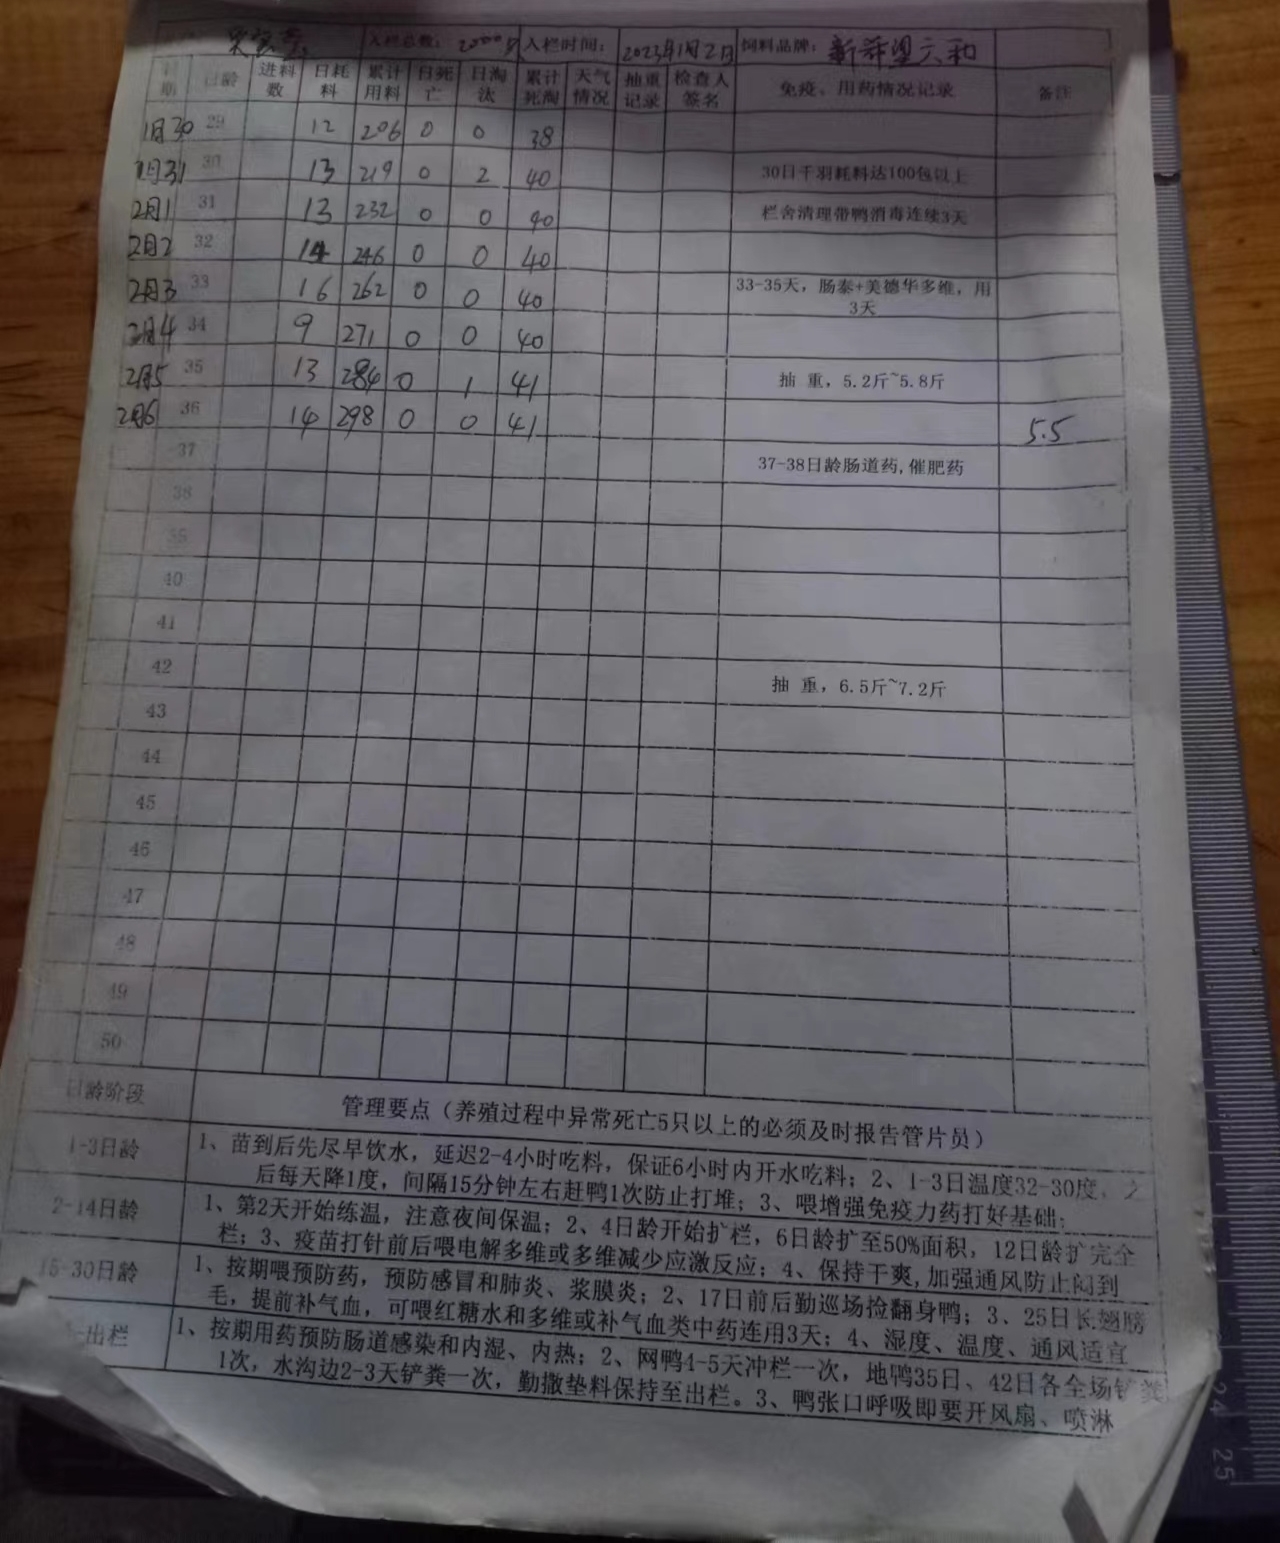 入栏总数: 2000只 入栏时间: 2023年1月2日 饲料品牌: 新希望六和
日期 日龄 进料数 日耗料 累计用料 日死亡 日淘汰 累计死淘 天气情况 抽重记录 检查人签名 免疫、用药情况记录 备注
1月30 29 12 206 0 0 38
1月31 30 13 219 0 2 40 30日千羽耗料达100包以上
2月1 31 13 232 0 0 40 栏舍清理带鸭消毒连续3天
2月2 32 14 246 0 0 40
2月3 33 16 262 0 0 40 33-35天，肠泰+美德华多维，用3天
2月4 34 9 271 0 0 40
2月5 35 13 284 0 1 41 抽 重，5.2斤~5.8斤
2月6 36 14 298 0 0 41 5.5
37 37-38日龄肠道药,催肥药
38
39
40
41
42 抽 重，6.5斤~7.2斤
43
44
45
46
47
48
49
50
日龄阶段 管理要点（养殖过程中异常死亡5只以上的必须及时报告管片员）
1-3日龄 1、苗到后先尽早饮水，延迟2-4小时吃料，保证6小时内开水吃料；2、1-3日温度32-30度，之
后每天降1度，间隔15分钟左右赶鸭1次防止打堆；3、喂增强免疫力药打好基础；
2-14日龄 1、第2天开始练温，注意夜间保温；2、4日龄开始扩栏，6日龄扩至50%面积，12日龄扩完全
栏；3、疫苗打针前后喂电解多维或多维减少应激反应；4、保持干爽,加强通风防止闷到
15-30日龄 1、按期喂预防药，预防感冒和肺炎、浆膜炎；2、17日前后勤巡场捡翻身鸭；3、25日长翅膀
毛，提前补气血，可喂红糖水和多维或补气血类中药连用3天；4、湿度、温度、通风适宜
-出栏 1、按期用药预防肠道感染和内湿、内热；2、网鸭4-5天冲栏一次，地鸭35日、42日各全场铲粪
1次，水沟边2-3天铲粪一次，勤撒垫料保持至出栏。3、鸭张口呼吸即要开风扇、喷淋
24
25